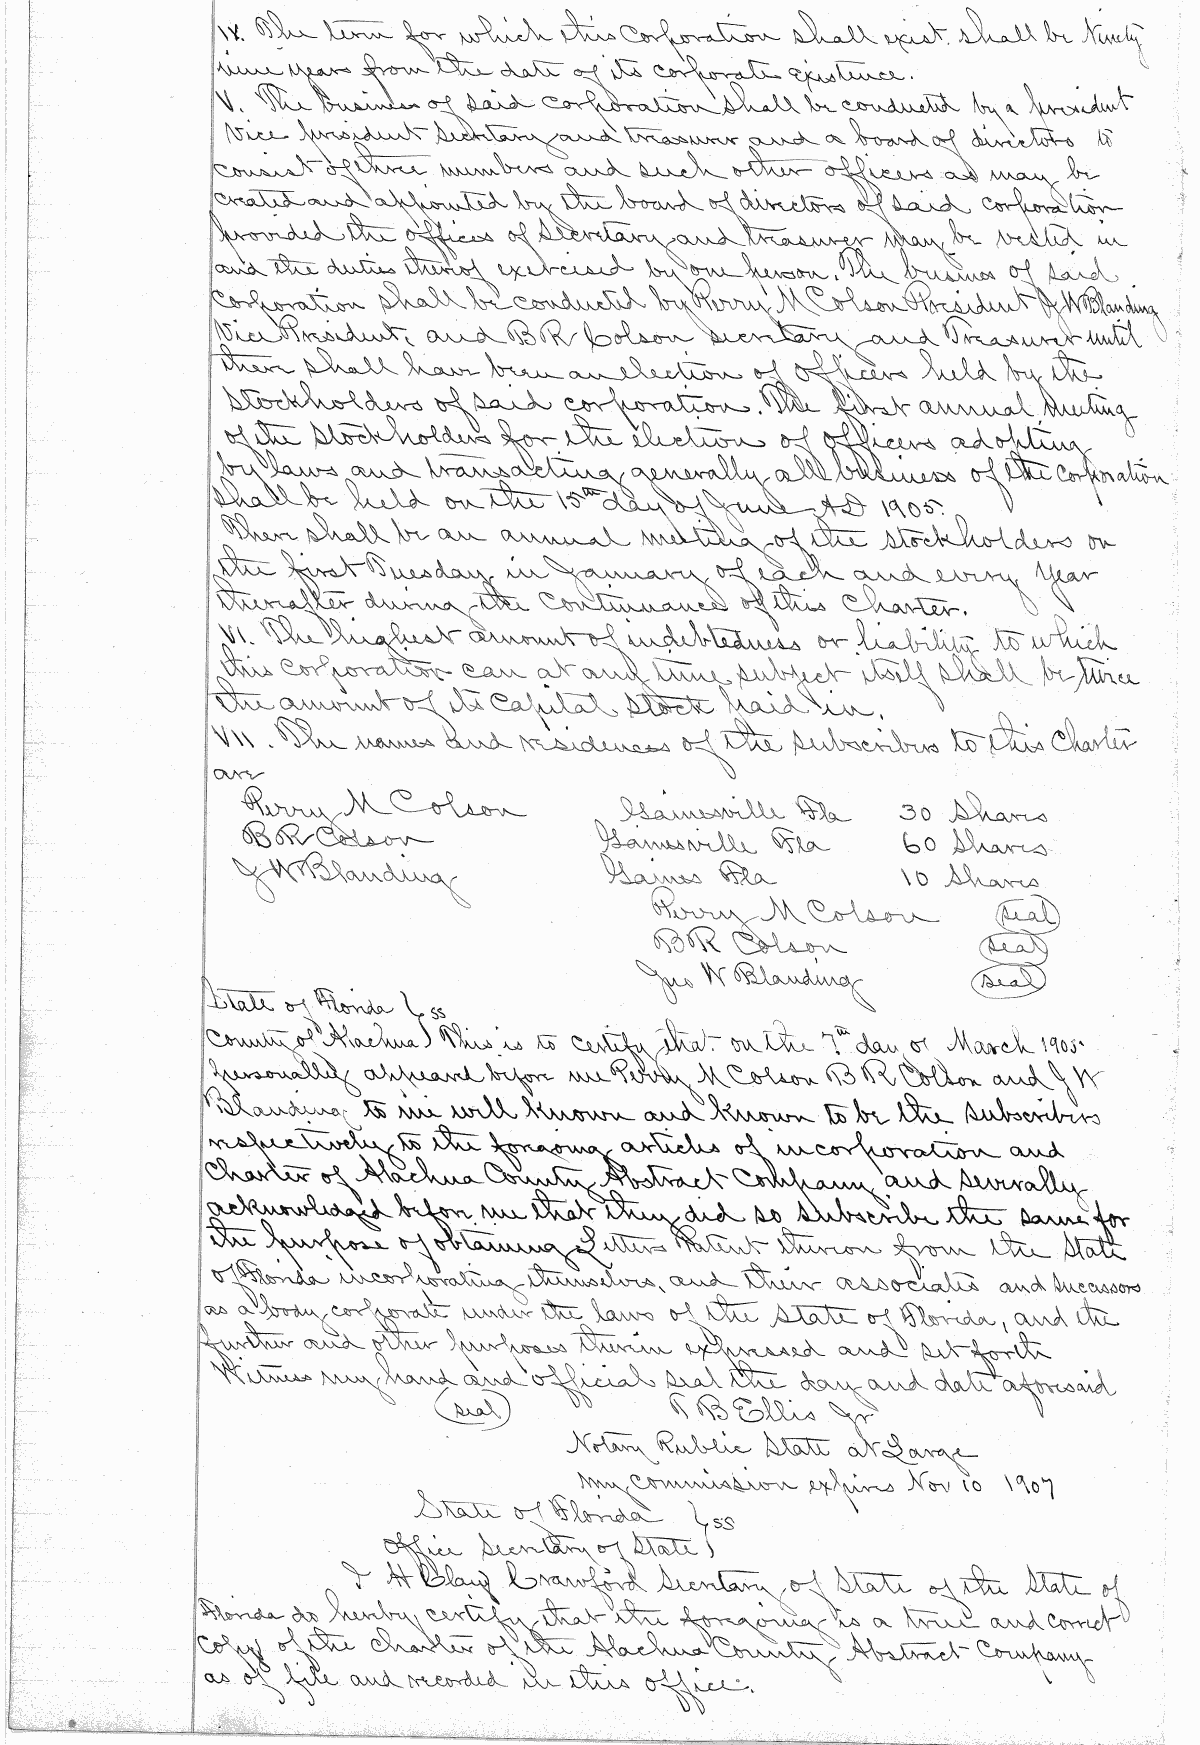 IV. The term for which this Corporation shall exist shall be Ninety
nine years from the date of its corporate existence.
V. The business of said corporation shall be conducted by a president
Vice president Secretary and treasurer and a board of directors to
consist of three members and such other officers as may be
created and appointed by the board of directors of said corporation
provided the offices of Secretary and treasurer may be vested in
and the duties therof exercised by one person. The business of said
corporation shall be conducted by Perry M Colson President J W Blanding
Vice President, and B R Colson secretary and Treasurer until
there shall have been an election of officers held by the
stockholders of said corporation. The first annual meeting
of the stockholders for the election of officers adopting
by laws and transacting generally all business of the corporation
shall be held on the 15th day of June AD 1905.
There shall be an annual meeting of the stockholders on
the first Tuesday in January of each and every year
thereafter during the continuance of this Charter.
VI. The highest amount of indebtedness or liability to which
this corporation can at any time subject itself shall be twice
the amount of its Capital Stock paid in.
VII. The names and residences of the subscribers to this Charter
are
Perry M Colson Gainesville Fla 30 Shares
B R Colson Gainesville Fla 60 Shares
J W Blanding Gaines Fla 10 Shares
Perry M Colson seal
B R Colson seal
Jno W Blanding seal
State of Florida } ss
County of Alachua } This is to certify that on the 7th day of March 1905
personally appeard before me Perry M Colson B R Colson and J W
Blanding to me well known and known to be the subscribers
respectively to the foregoing articles of incorporation and
Charter of Alachua County Abstract Company and severally
acknowledged before me that they did so subscribe the same for
the purpose of obtaining Letters Patent thereon from the State
of Florida incorporating themselves, and their associates and successors
as a body corporate under the laws of the State of Florida, and the
further and other purposes therein expressed and set forth
Witness my hand and official seal the day and date aforesaid
seal B Ellis Jr
Notary Public State at Large
My commission expires Nov 10 1907
State of Florida } ss
Office Secretary of State }
I H Clay Crawford Secretary of State of the State of
Florida do hereby certify that the foregoing is a true and correct
copy of the charter of the Alachua County Abstract Company
as of file and recorded in this office.